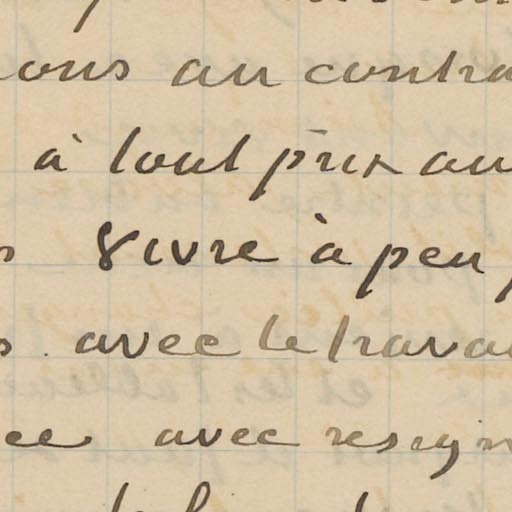 ons au contra
à tout prix au
vivre à peu p
avec le trava
ee avec resign